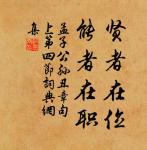 贤者在位
能者在职
孟子公孙丑章句
上第四节词典网
集